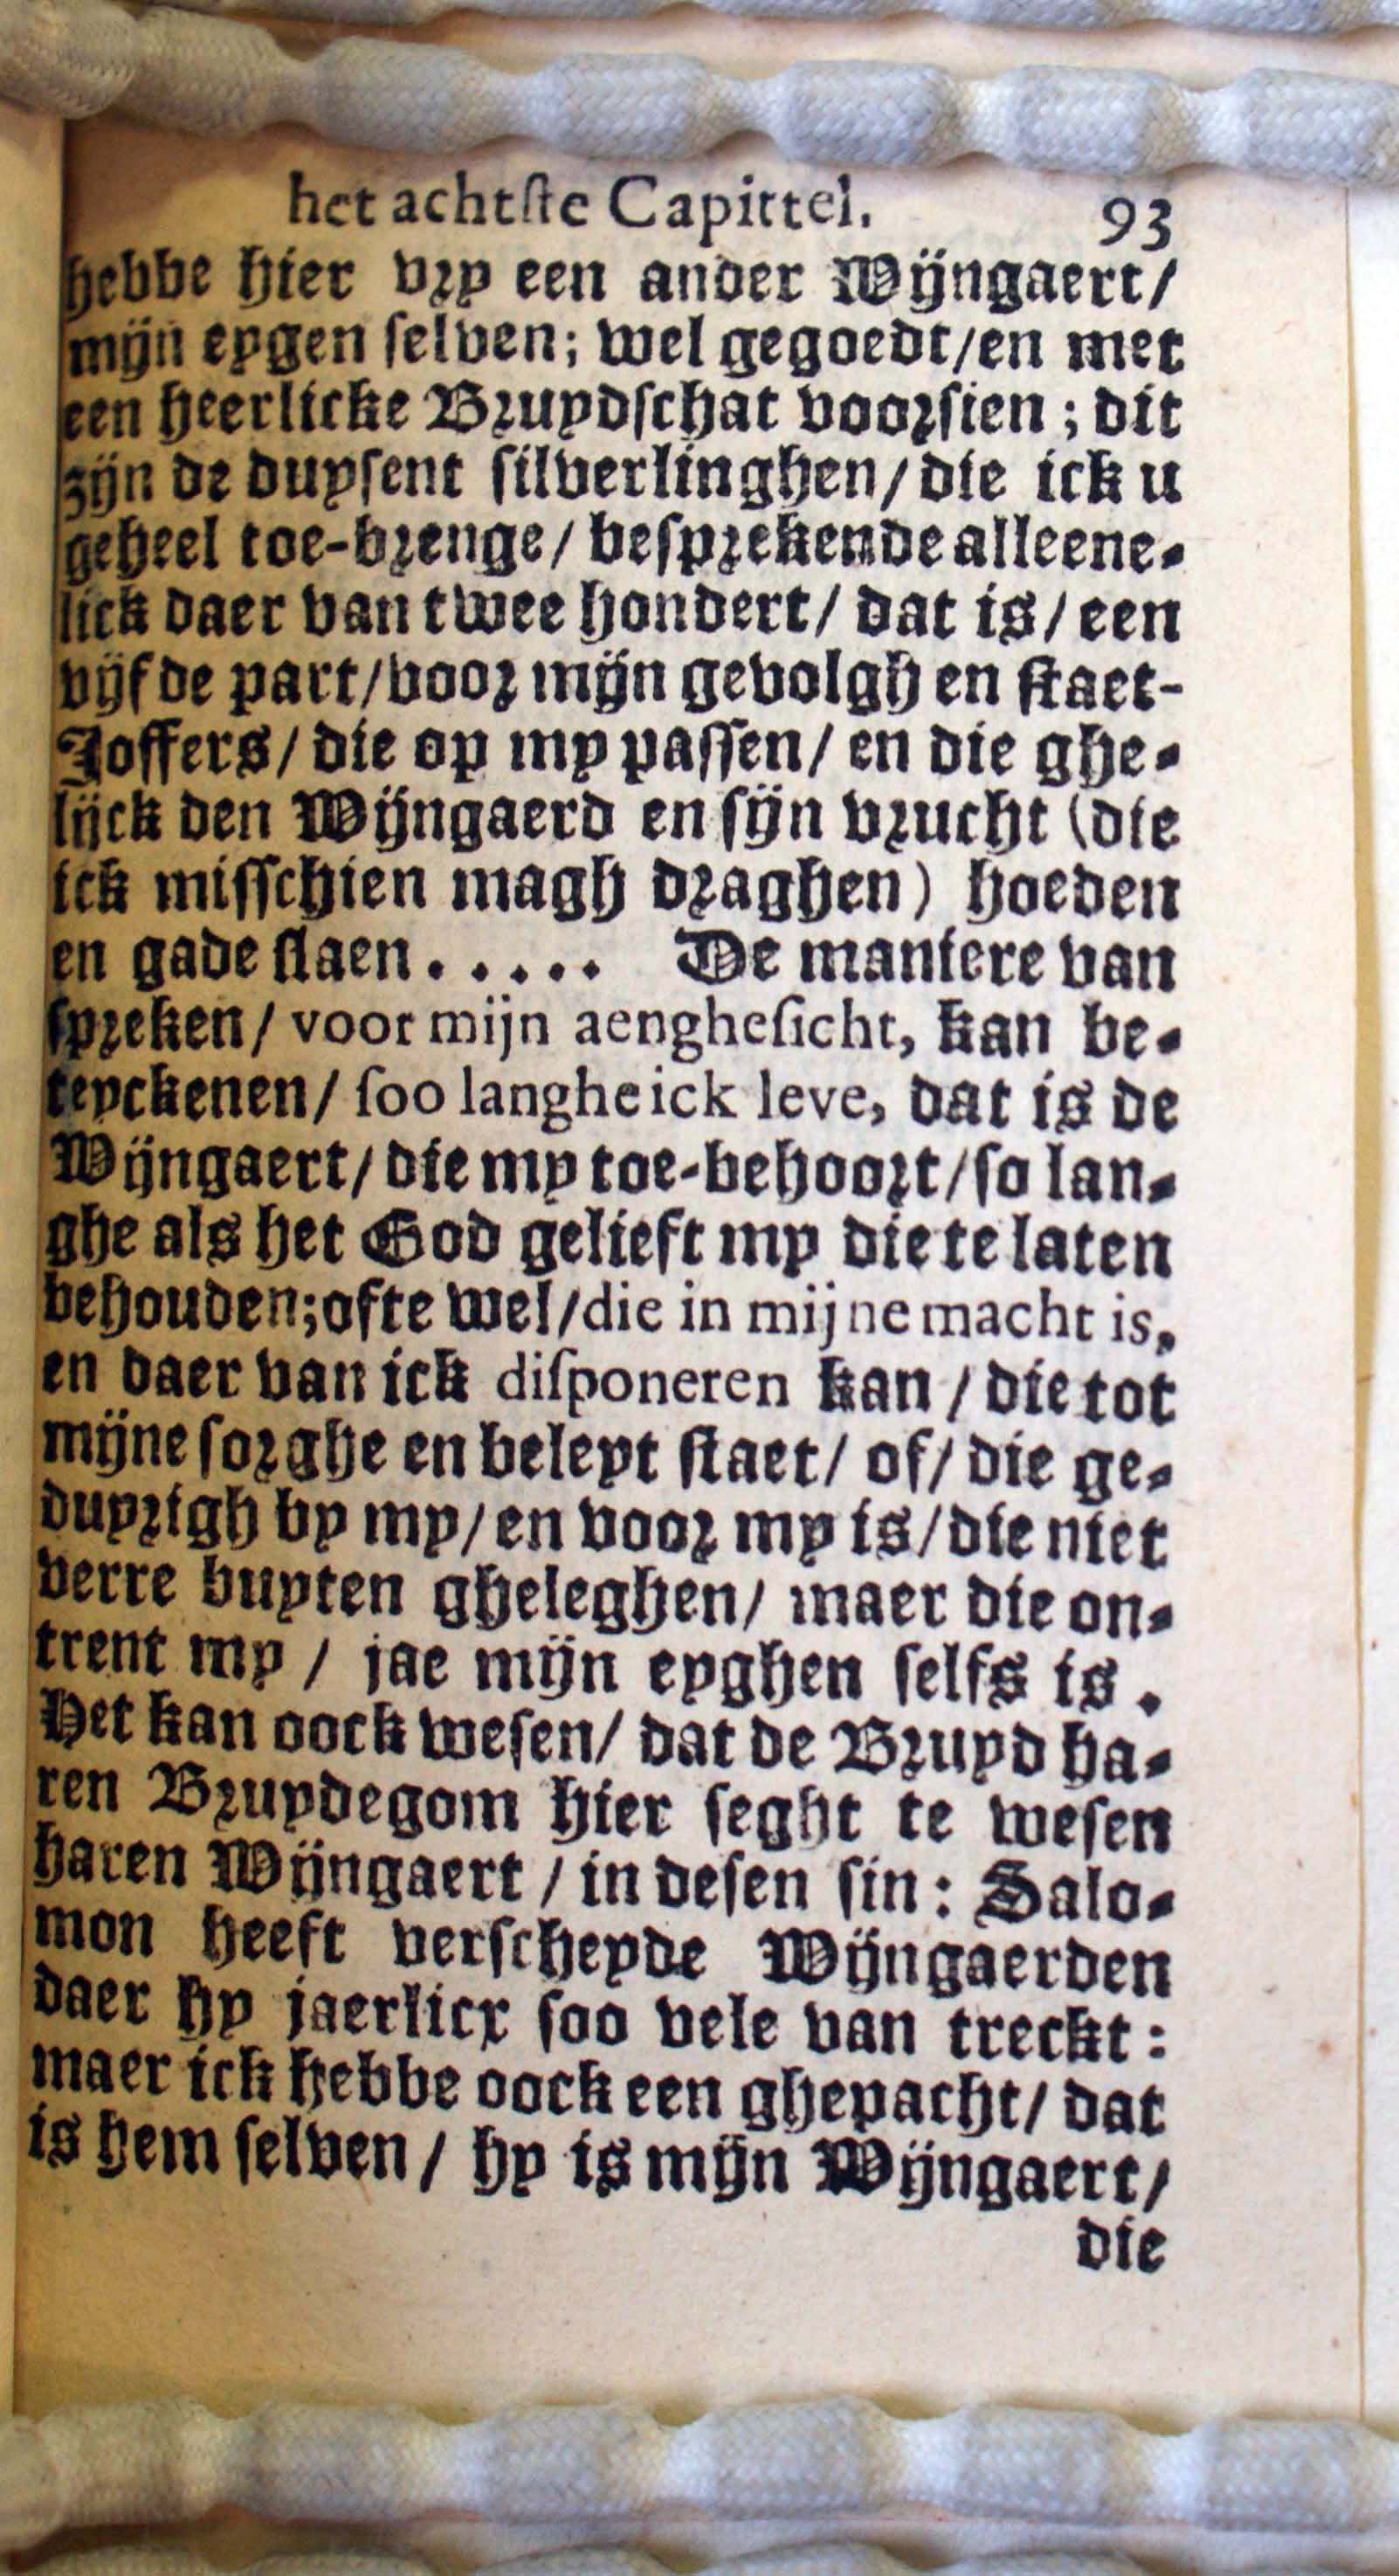 het achtſte Capittel. 93
hebbe hier vry een ander Wijngaert/
mijn eygen ſelven; wel gegoedt/en met
een heerlicke Bruydſchat voorſien; dit
zijn de duyſent ſilverlinghen/die ick u
geheel toe-brenge/ beſprekende alleene-
lick daer van twee hondert/ dat is/een
vijfde part/voor mijn gevolgh en ſtaet-
Joffers/ die op my paſſen/ en die ghe-
lijck den Wijngaerd en ſijn vrucht (die
ick miſſchien magh draghen) hoeden
en gade ſlaen..... De maniere van
ſpreken/ voor mijn aengheſicht, kan be-
teyckenen/ ſoo langhe ick leve, dat is de
Wijngaert/die my toe-behoort/ſo lan-
ghe als het God gelieft my die te laten
behouden;ofte wel/die in mijne macht is,
en daer van ick diſponeren kan/die tot
mijne ſorghe en beleyt ſtaet/ of/ die ge-
duyrigh by my/en voor my is/die niet
verre buyten gheleghen/ maer die on-
trent my/ jae mijn eyghen ſelfs is.
Het kan oock weſen/ dat de Bruyd ha-
ren Bruydegom hier ſeght te weſen
haren Wijngaert/in deſen ſin: Salo-
mon heeft verſcheyde Wijngaerden
daer hy jaerlicx ſoo vele van treckt:
maer ick hebbe oock een ghepacht/ dat
is hem ſelven/ hy is mijn Wijngaert/
die